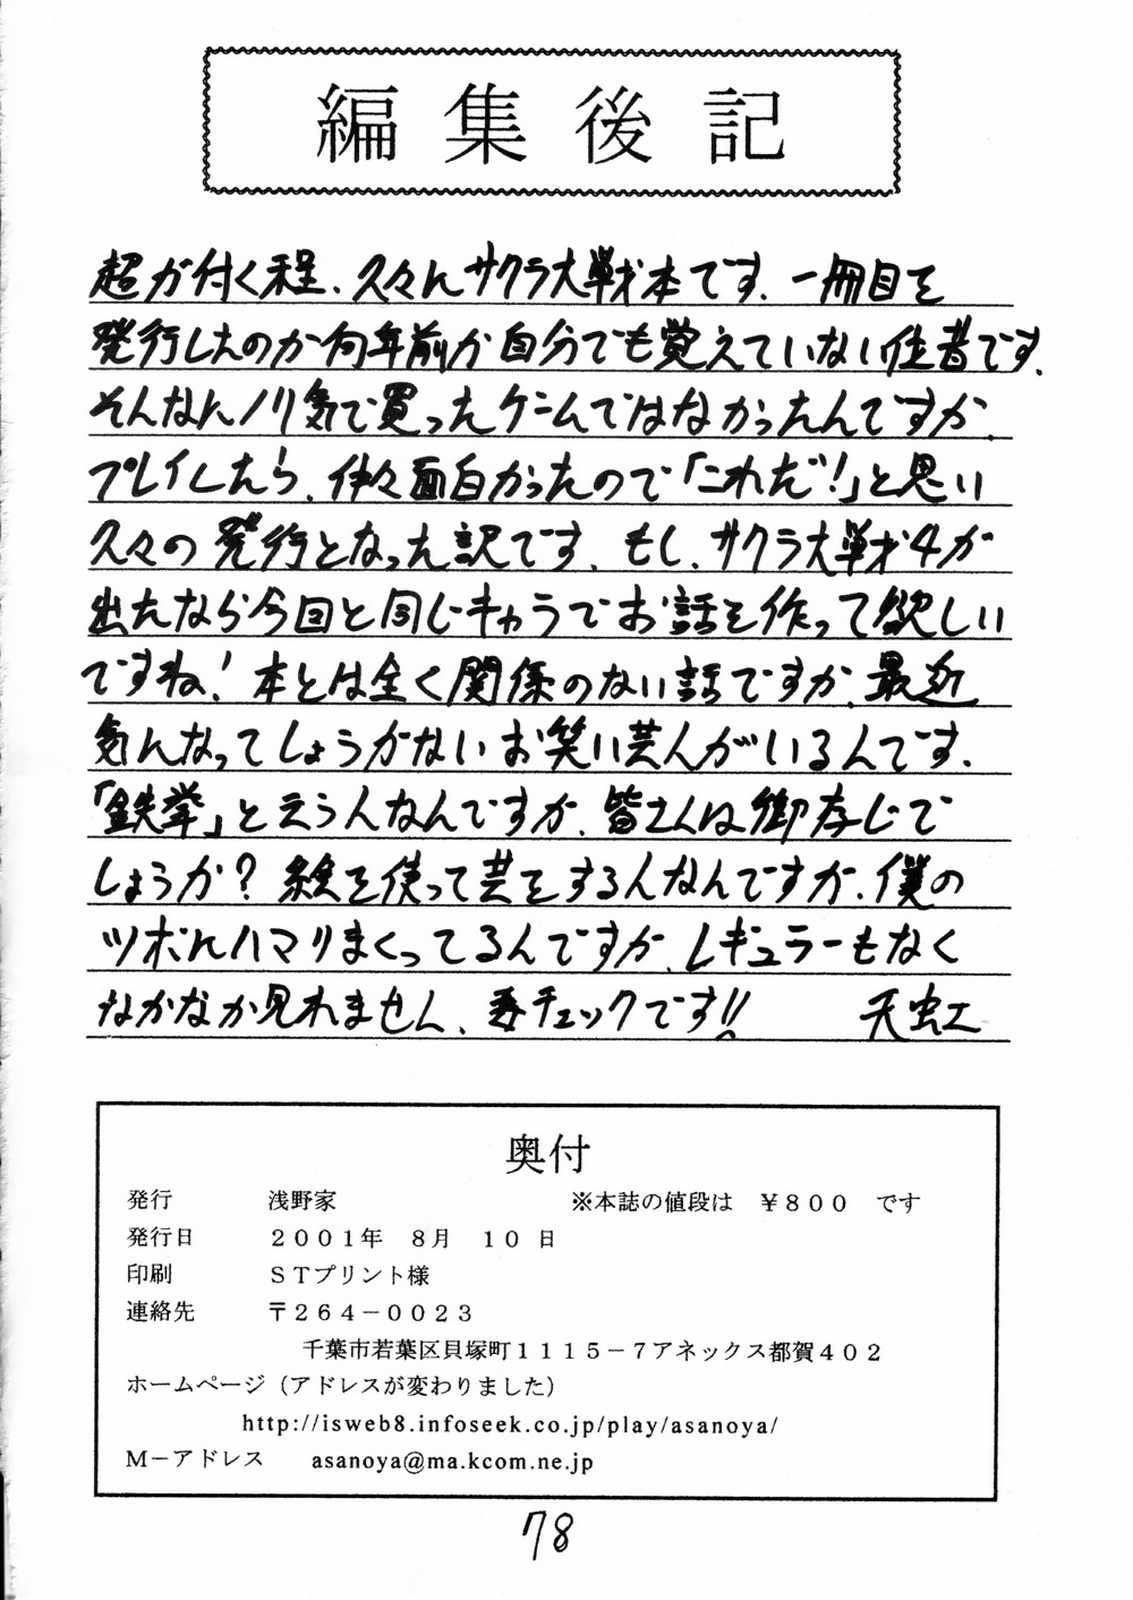 編集後記
超が付く程、久々にサクラ大戦本です、一冊目を
発行したのが何年前か自分でも覚えていない作者です、
そんなにノリ気で買ったゲームではなかったんですが、
プレイしたら、仲々面白かったので「これだ!」と思い
久々の発行となった訳です、もし、サクラ大戦4が
出たなら今回と同じキャラでお話を作って欲しい
ですね!本とは全く関係のない話ですが、最近
気になってしょうがないお笑い芸人がいるんです、
「鉄拳」と云う人なんですが、皆さんは御存じで
しょうか?絵を使って芸をする人なんですが、僕の
ツボにハマりまくってるんですが、レギュラーもなく
なかなか見れません、要チェックです!! 天虫工
奥付
発行 浅野家 ※本誌の値段は ¥800 です
発行日 2001年 8月 10日
印刷 STプリント様
連絡先 〒264-0023
千葉市若葉区貝塚町1115-7アネックス都賀402
ホームページ(アドレスが変わりました)
http://isweb8.infoseek.co.jp/play/asanoya/
M-アドレス asanoya@ma.kcom.ne.jp
78